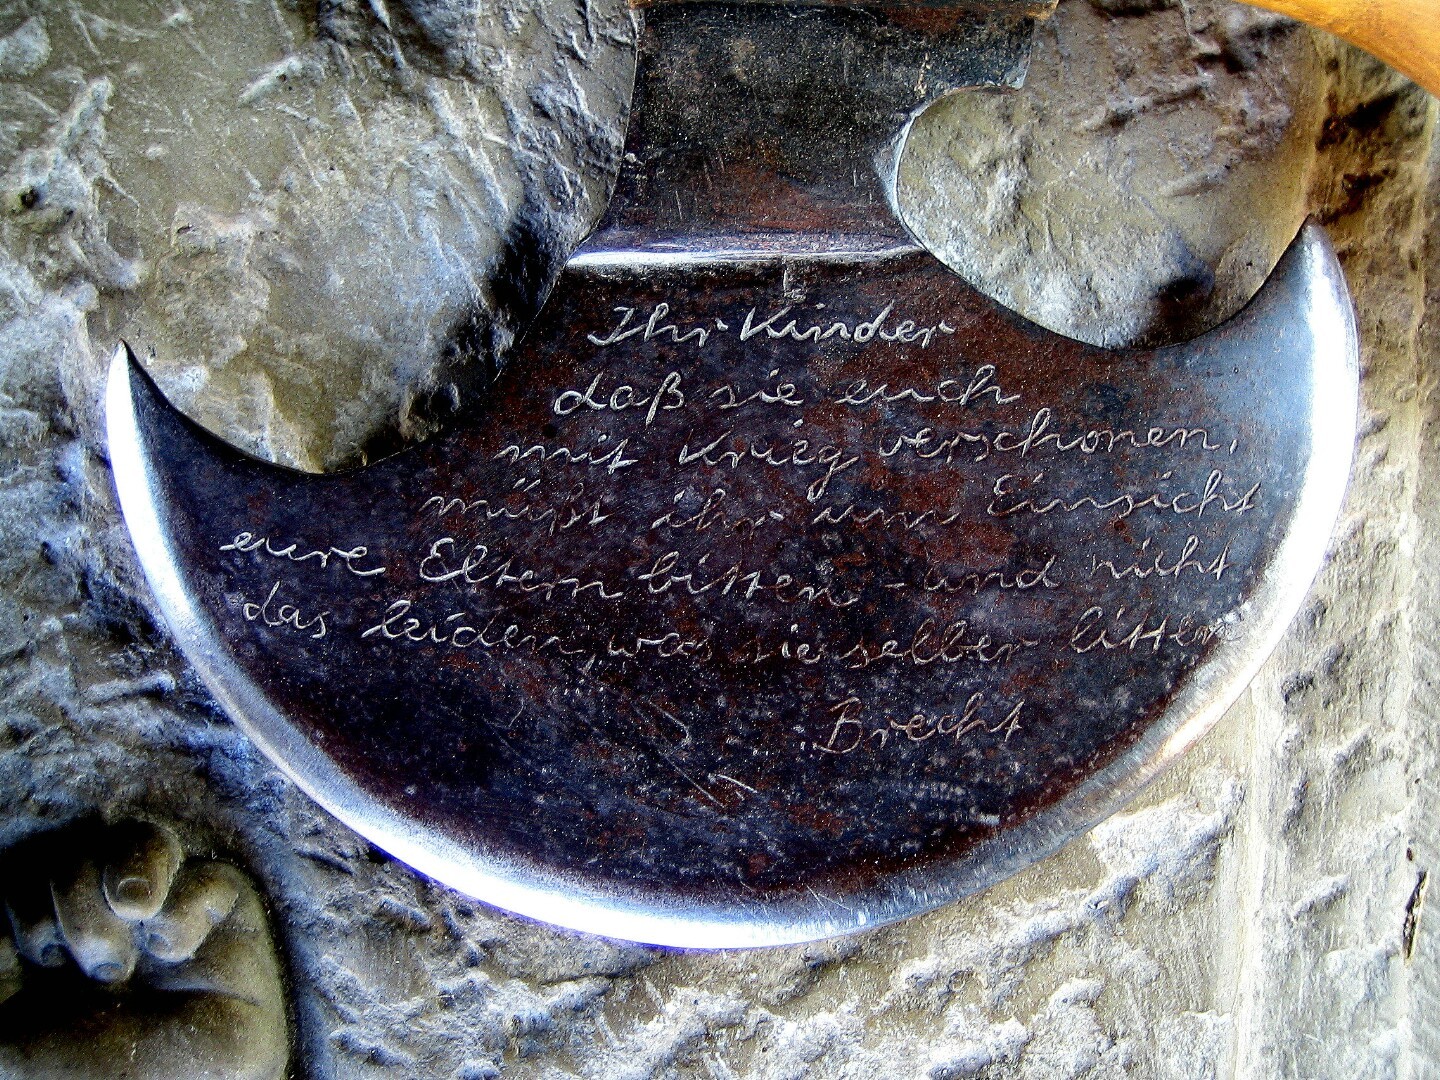 Ihr Kinder
daß sie euch
mit Krieg verschonen,
müßt ihr um Einsicht
eure Eltern bitten - und nicht
das leiden, was sie selber litten
Brecht